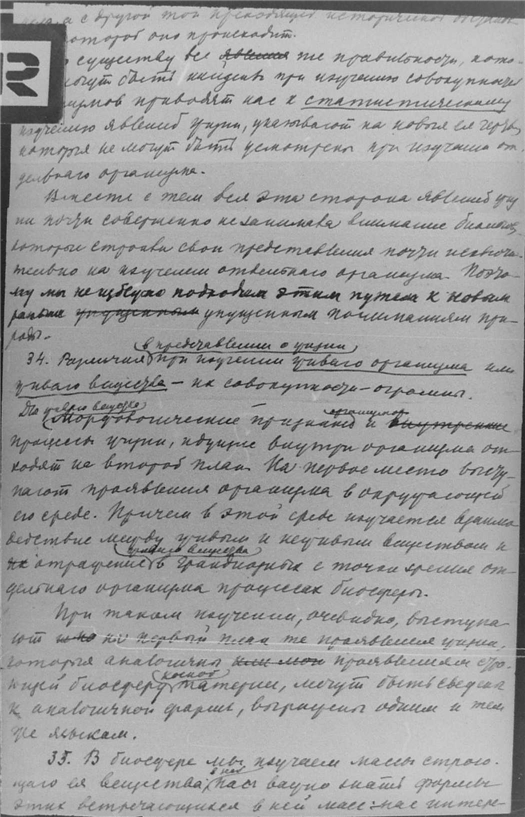 а с другой той преходящей исторической
которой оно происходит.
существу все явления те правильности, кото-
могут быть найдены при изучении совокупности
приводят нас к статистическому
изучению явлений жизни, указывают на новые ея черты,
которые не могут быть усмотрены при изучении от-
дельного организма.
Вместе с тем вся эта сторона явлений жиз-
ни почти совершенно не занимала внимание
которые строили свои представления почти исключи-
тельно на изучении отдельного организма. Поэто-
му мы неизбежно подходим этим путем к новым
раньше упущенным упущенным пониманиям при-
роды.
в представлении о жизни
34. Различия при изучении живого организма или
живого вещества – их совокупности – огромны.
Для живого вещества организмов
Морфологические признаки и внутренние
процессы жизни, идущие внутри организма от-
ходят на второй план. На первое место высту-
пают проявления организма в окружающей
его среде. Причем в этой среде изучается взаимо-
действие между живым и неживым веществом и
живого вещества
их отражение в грандиозных с точки зрения от-
дельного организма процессах биосферы.
При таком изучении, очевидно, выступа-
ют на первый план те проявления жизни,
которые аналогичны проявлениям
биосферу косной материи, могут быть сведены
к аналогичной форме, выражены одним и тем
же языком.
35. В биосфере мы изучаем массы строю-
щаго ея вещества; в ней нам важно знать формы
этих встречающихся в ней масс: нас интере-